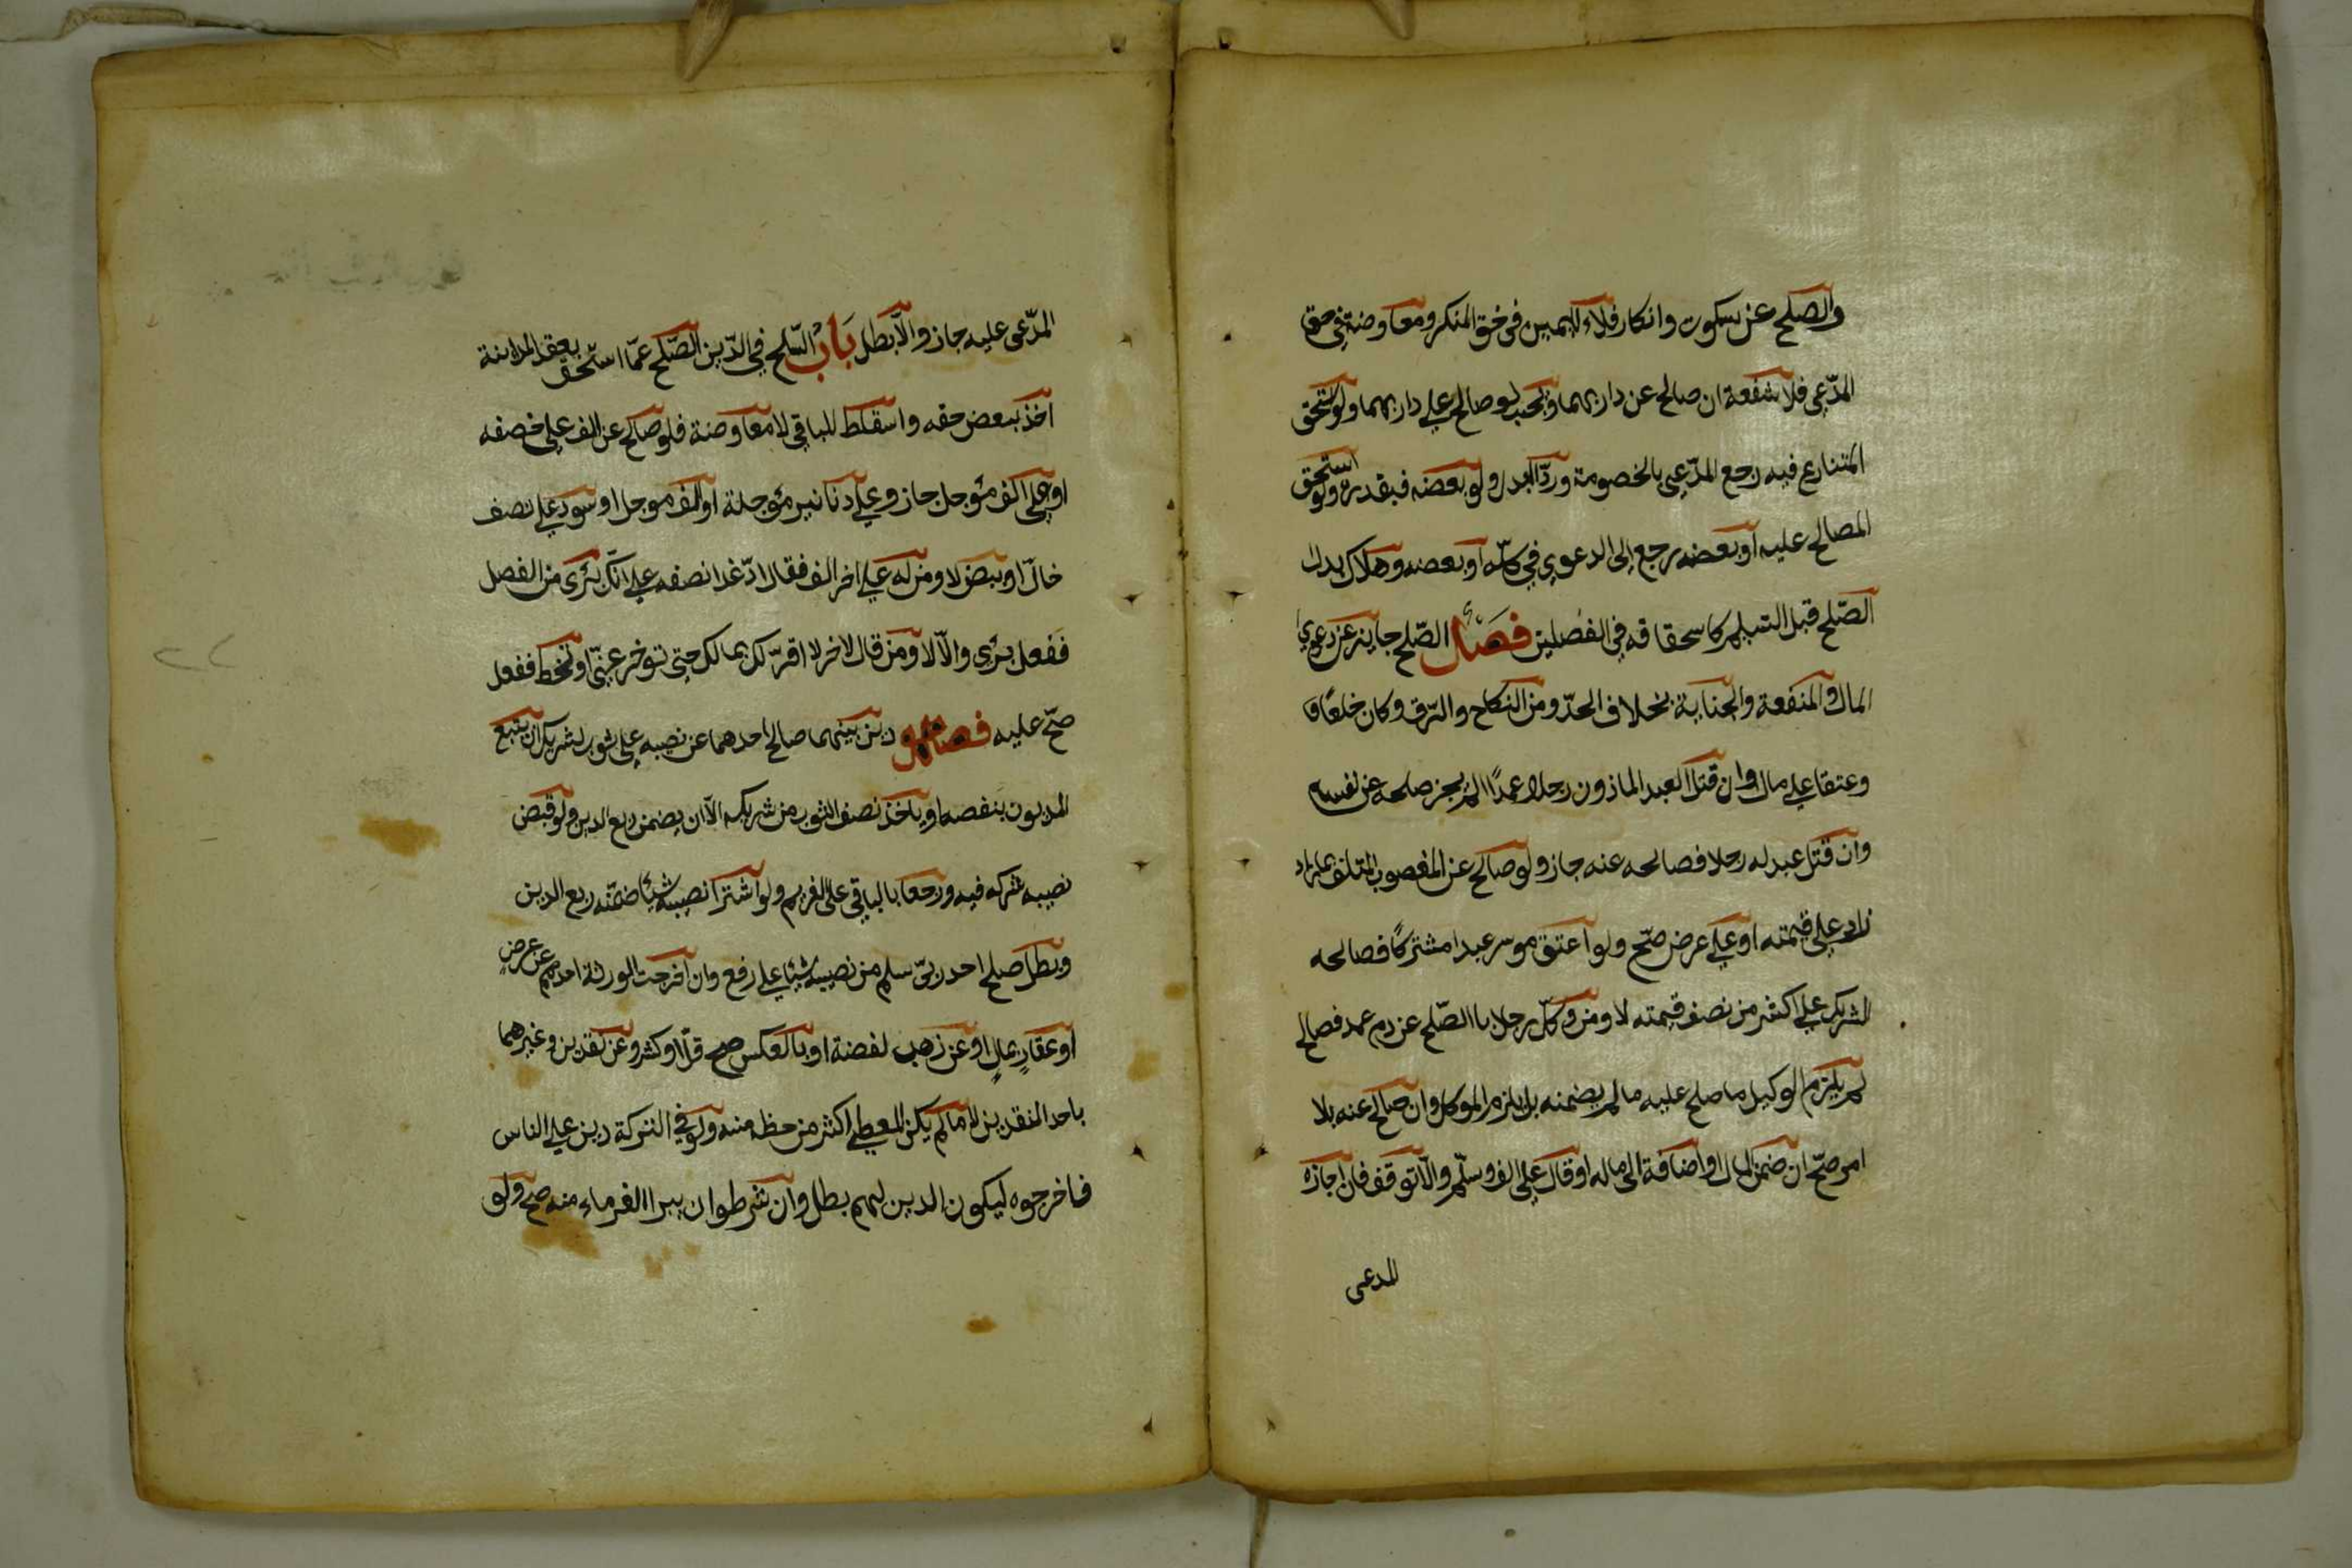 والصلح عن سكوت وانكار فلاء لليمين في حق المنكر ومعاوضة في حق
المدّعي فلا شفعة ان صالح عن دار بهما وتجب لو صالح على دار بهما ولو استحق
المتنازع فيه رجع المدّعي بالخصومة وردّ البدل ولو بعضه فبقدره ولو استحق
المصالح عليه او بعضه رجع الى الدعوي في كلّه او بعضه وهلاك بدل
الصّلح قبل التسليم كاسحقاقه في الفصلين فصل الصّلح جايز عن دعوي
المال والمنفعة والجناية بخلاف الحدّ ومن النكاح والرّق وكان خلعًا
وعتقا على مال وان قتل العبد الماذون رجلا عمدًا لم يجز صلحه عن نفسه
وان قتل عبد له رجلا فصالحه عنه جاز ولو صالح عن المغصوب المتلف بما زاد
زاد على قيمته او على عرض صحّ ولو اعتق موسر عبدا مشتركًا فصالحه
الشريك على اكثر من نصف قيمته لا ومن وكّل رجلا باالصّلح عن دم عمد فصالح
لم يلزم الوكيل ما صلح عليه ما لم يضمنه بل يلزم الموكل وان صالح عنه بلا
امر صحّ ان ضمن المال او اضافة الى ماله او قال على الف وسلّم والّا توقف فان اجازه
المدعى
المدّعى عليه جاز والّا بطل بَابُ الصّلح في الدّين الصّلح عمّا استحق بعقد المداينة
اخذ ببعض حقه واسقاط للباقي لا معاوضة فلو صالح عن الف على نصفه
او على الف مؤجل جاز وعلى دنانير مؤجلة او الف موجل او سود على نصف
حالّ او بيض لا ومن له على اخر الف فقال ادّ غدا نصفه على انّك برى من الفصل
ففعل برى والّا لا ومن قال لاخر لا اقرّ لك بما لك حتى توخر عنّي او تحط ففعل
صحّ عليه فصل دين بينهما صالح احدهما عن نصيبه على ثوب لشريكه ان يتبع
المديون بنصفه او ياخذ نصف الثوب من شريكه الّا ان يضمن ربع الدين ولو قبض
نصيبه شركه فيه ورجعا بالباقي على الغريم ولو اشترا نصيبه شيئا ضمّنه ربع الدين
وبطل صلح احد ربّى سلم من نصيبه شيئا على رفع وان اخرجت الورثة احدهم عن عرضٍ
او عقارٍ بمالٍ او عن ذهب لفضة او بالعكس صح قلّ او كثر وعن نقدين وغيرهما
باحد النقدين لا ما لم يكن المعطى اكثر من حظه منه ولو في التركة دين على الناس
فاخرجوه ليكون الدين لهم بطل وان شرطوا ان يبرا الغرماء منه صح ولو